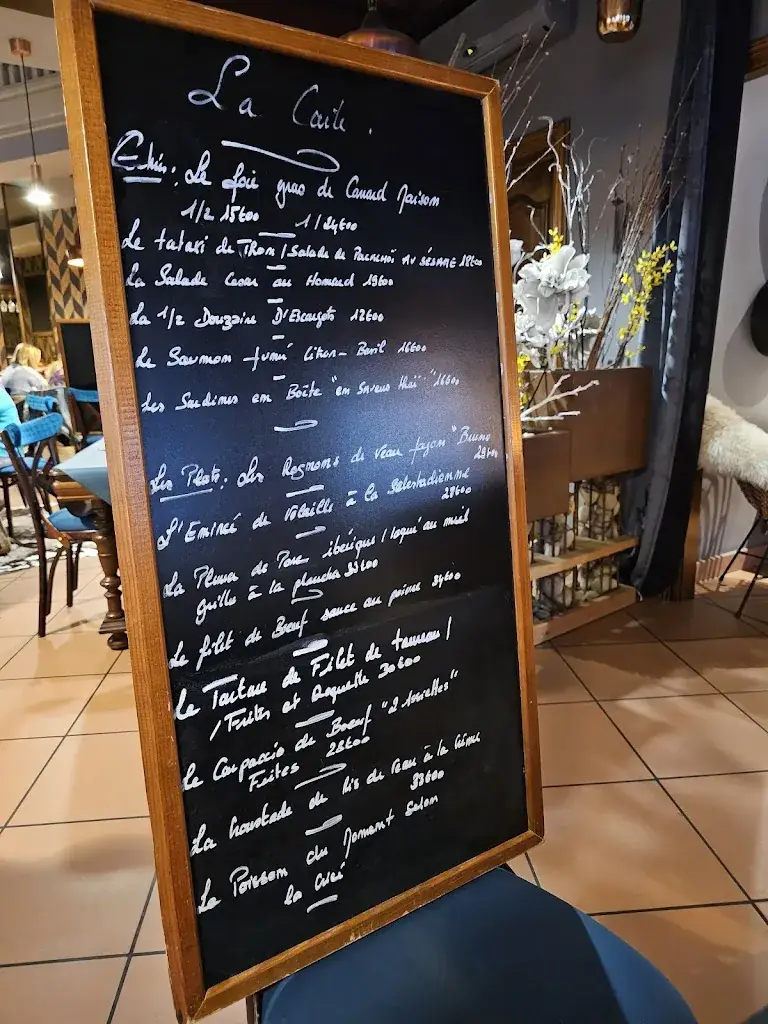 La Carte.
Entrées: Le foie gras de Canard Maison
1/2 15€00 1/24€00
Le tartare de THON / Salade de Pakchoï AU SÉSAME 18€00
La Salade Cesar au Homard 19€00
La 1/2 Douzaine D'Escargots 12€00
Le Saumon fumé Citron-Basil 16€00
Les Sardines en Boîte "en Saveur thaï" 16€00
Les Plats: Les Rognons de Veau façon "Bruno
28€00
L'Emincé de Volaille à la Sélestadienne
28€00
La Pluma de Porc ibérique / laqué au miel
grillé à la plancha 30€00
Le filet de Bœuf sauce au poivre 34€00
Le Tartare de Filet de taureau /
/ Frites et Roquette 30€00
Le Carpaccio de Boeuf "2 Assiettes"
Frites 28€00
La Croustade de Ris de Veau à la Crème
33€00
Le Poisson du Moment Selon
la Criée